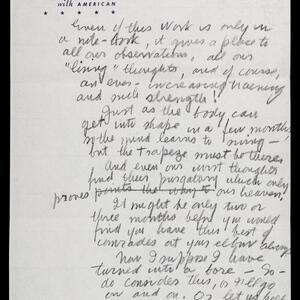 with AMERICAN
Even if this work is only in
a note-book, it gives a place to
all our observations, all our
"living" thoughts, and of course,
an ever-increasing training
and such strength!
Just as the body can
get into shape in a few months,
so the mind learns to swing—
but the trapeze must be there.
And even our worst thoughts
find their purgatory which only
proves points the way to our heaven!
It might be only two or
three months before you would
find you have this best of
comrades at your elbow always
Now I suppose I have
turned into a bore — So—
do consider this, or I'll go
on and on. Or let us